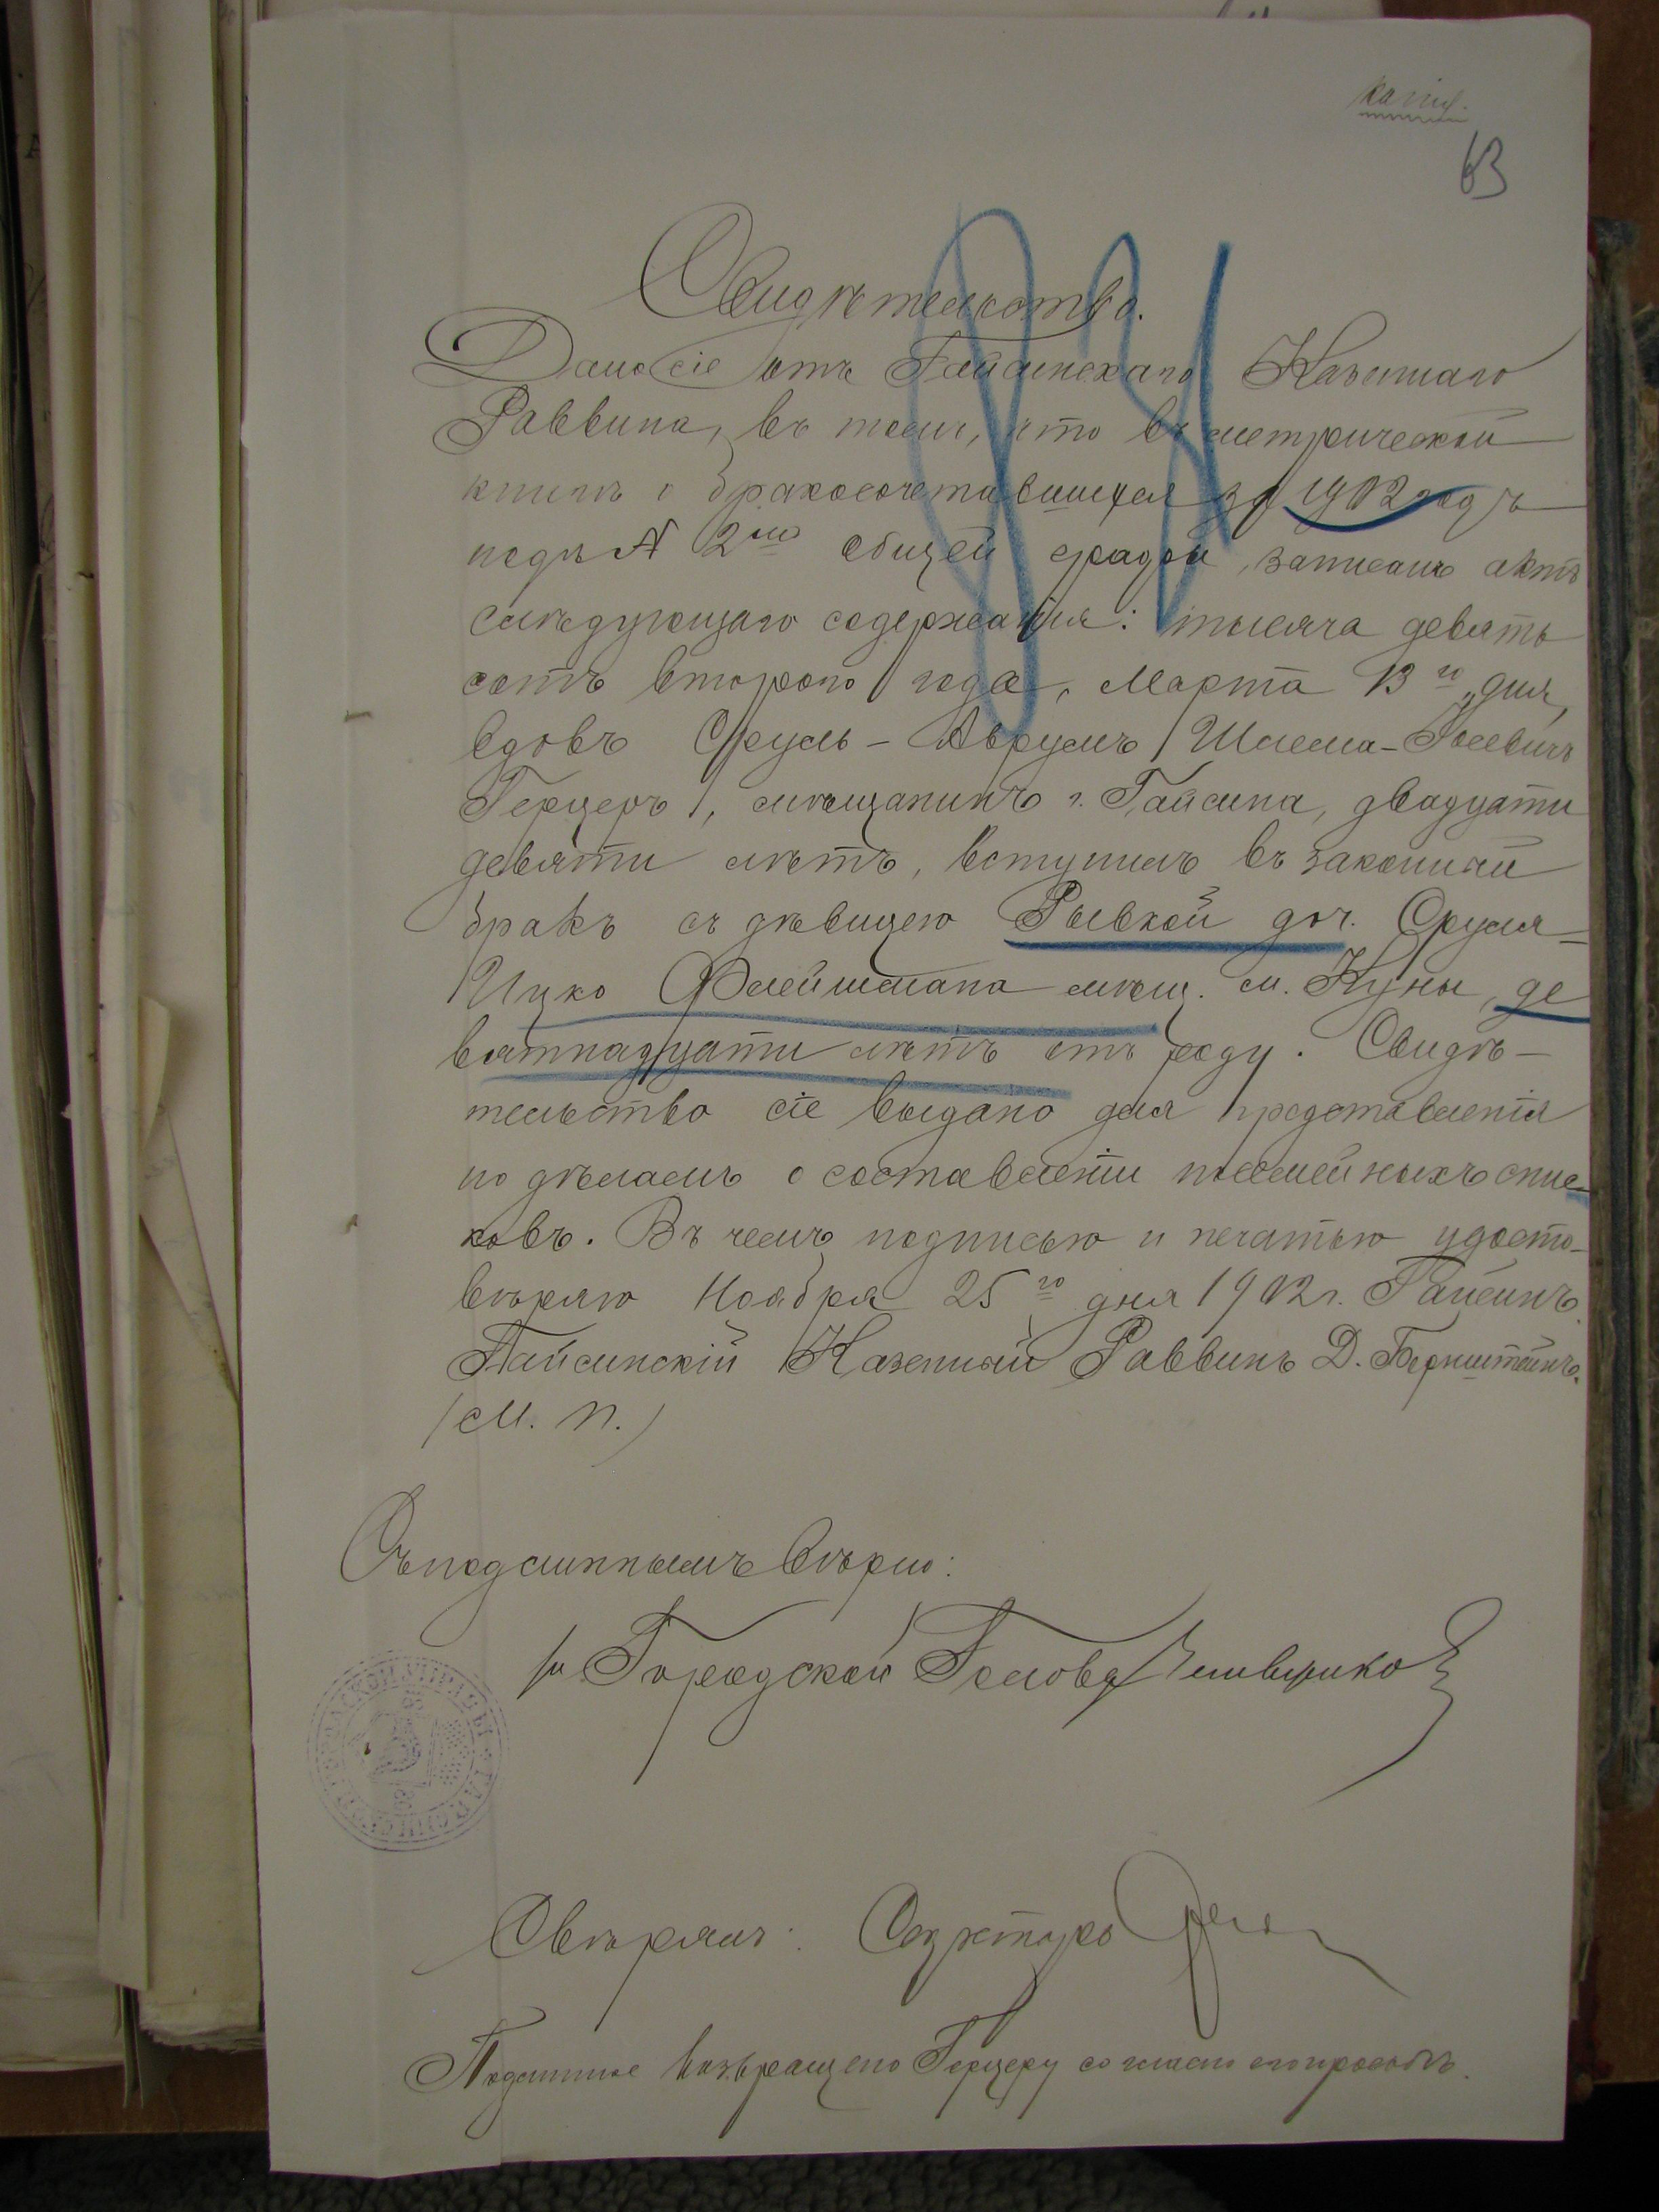 копія.
63
Свидѣтельство.
Дано сіе отъ Гайсинскаго Казеннаго
Раввина, въ томъ, что въ метрической
книгѣ о бракосочетавшихся за 1902 годъ
подъ № 2мъ общей графы, записанъ актъ
слѣдующаго содержанія: тысяча девять
сотъ второго года, Марта 13го дня,
вдовъ Сруль-Аврумъ Шлема-Іосевичъ
Герцеръ, мѣщанинъ г. Гайсина, двадцати
девяти лѣтъ, вступилъ въ законный
бракъ съ дѣвицею Рывкой доч. Сруля-
Ицко Флейшмана мѣщ. м. Куны, де
вятнадцати лѣтъ отъ роду. Свидѣ-
тельство сіе выдано для представленія
по дѣламъ о составленіи посемейныхъ спис-
ковъ. Въ чемъ подписью и печатью удосто-
вѣряю Ноября 25го дня 1902 г. Гайсинъ.
Гайсинскій Казенный Раввинъ Д. Бернштейнъ.
(М. П.)
Съ подлиннымъ вѣрно:
Городской Голова
Свѣрялъ: Секретарь
Подлинное возвращено Герцеру согласно его просьбѣ.